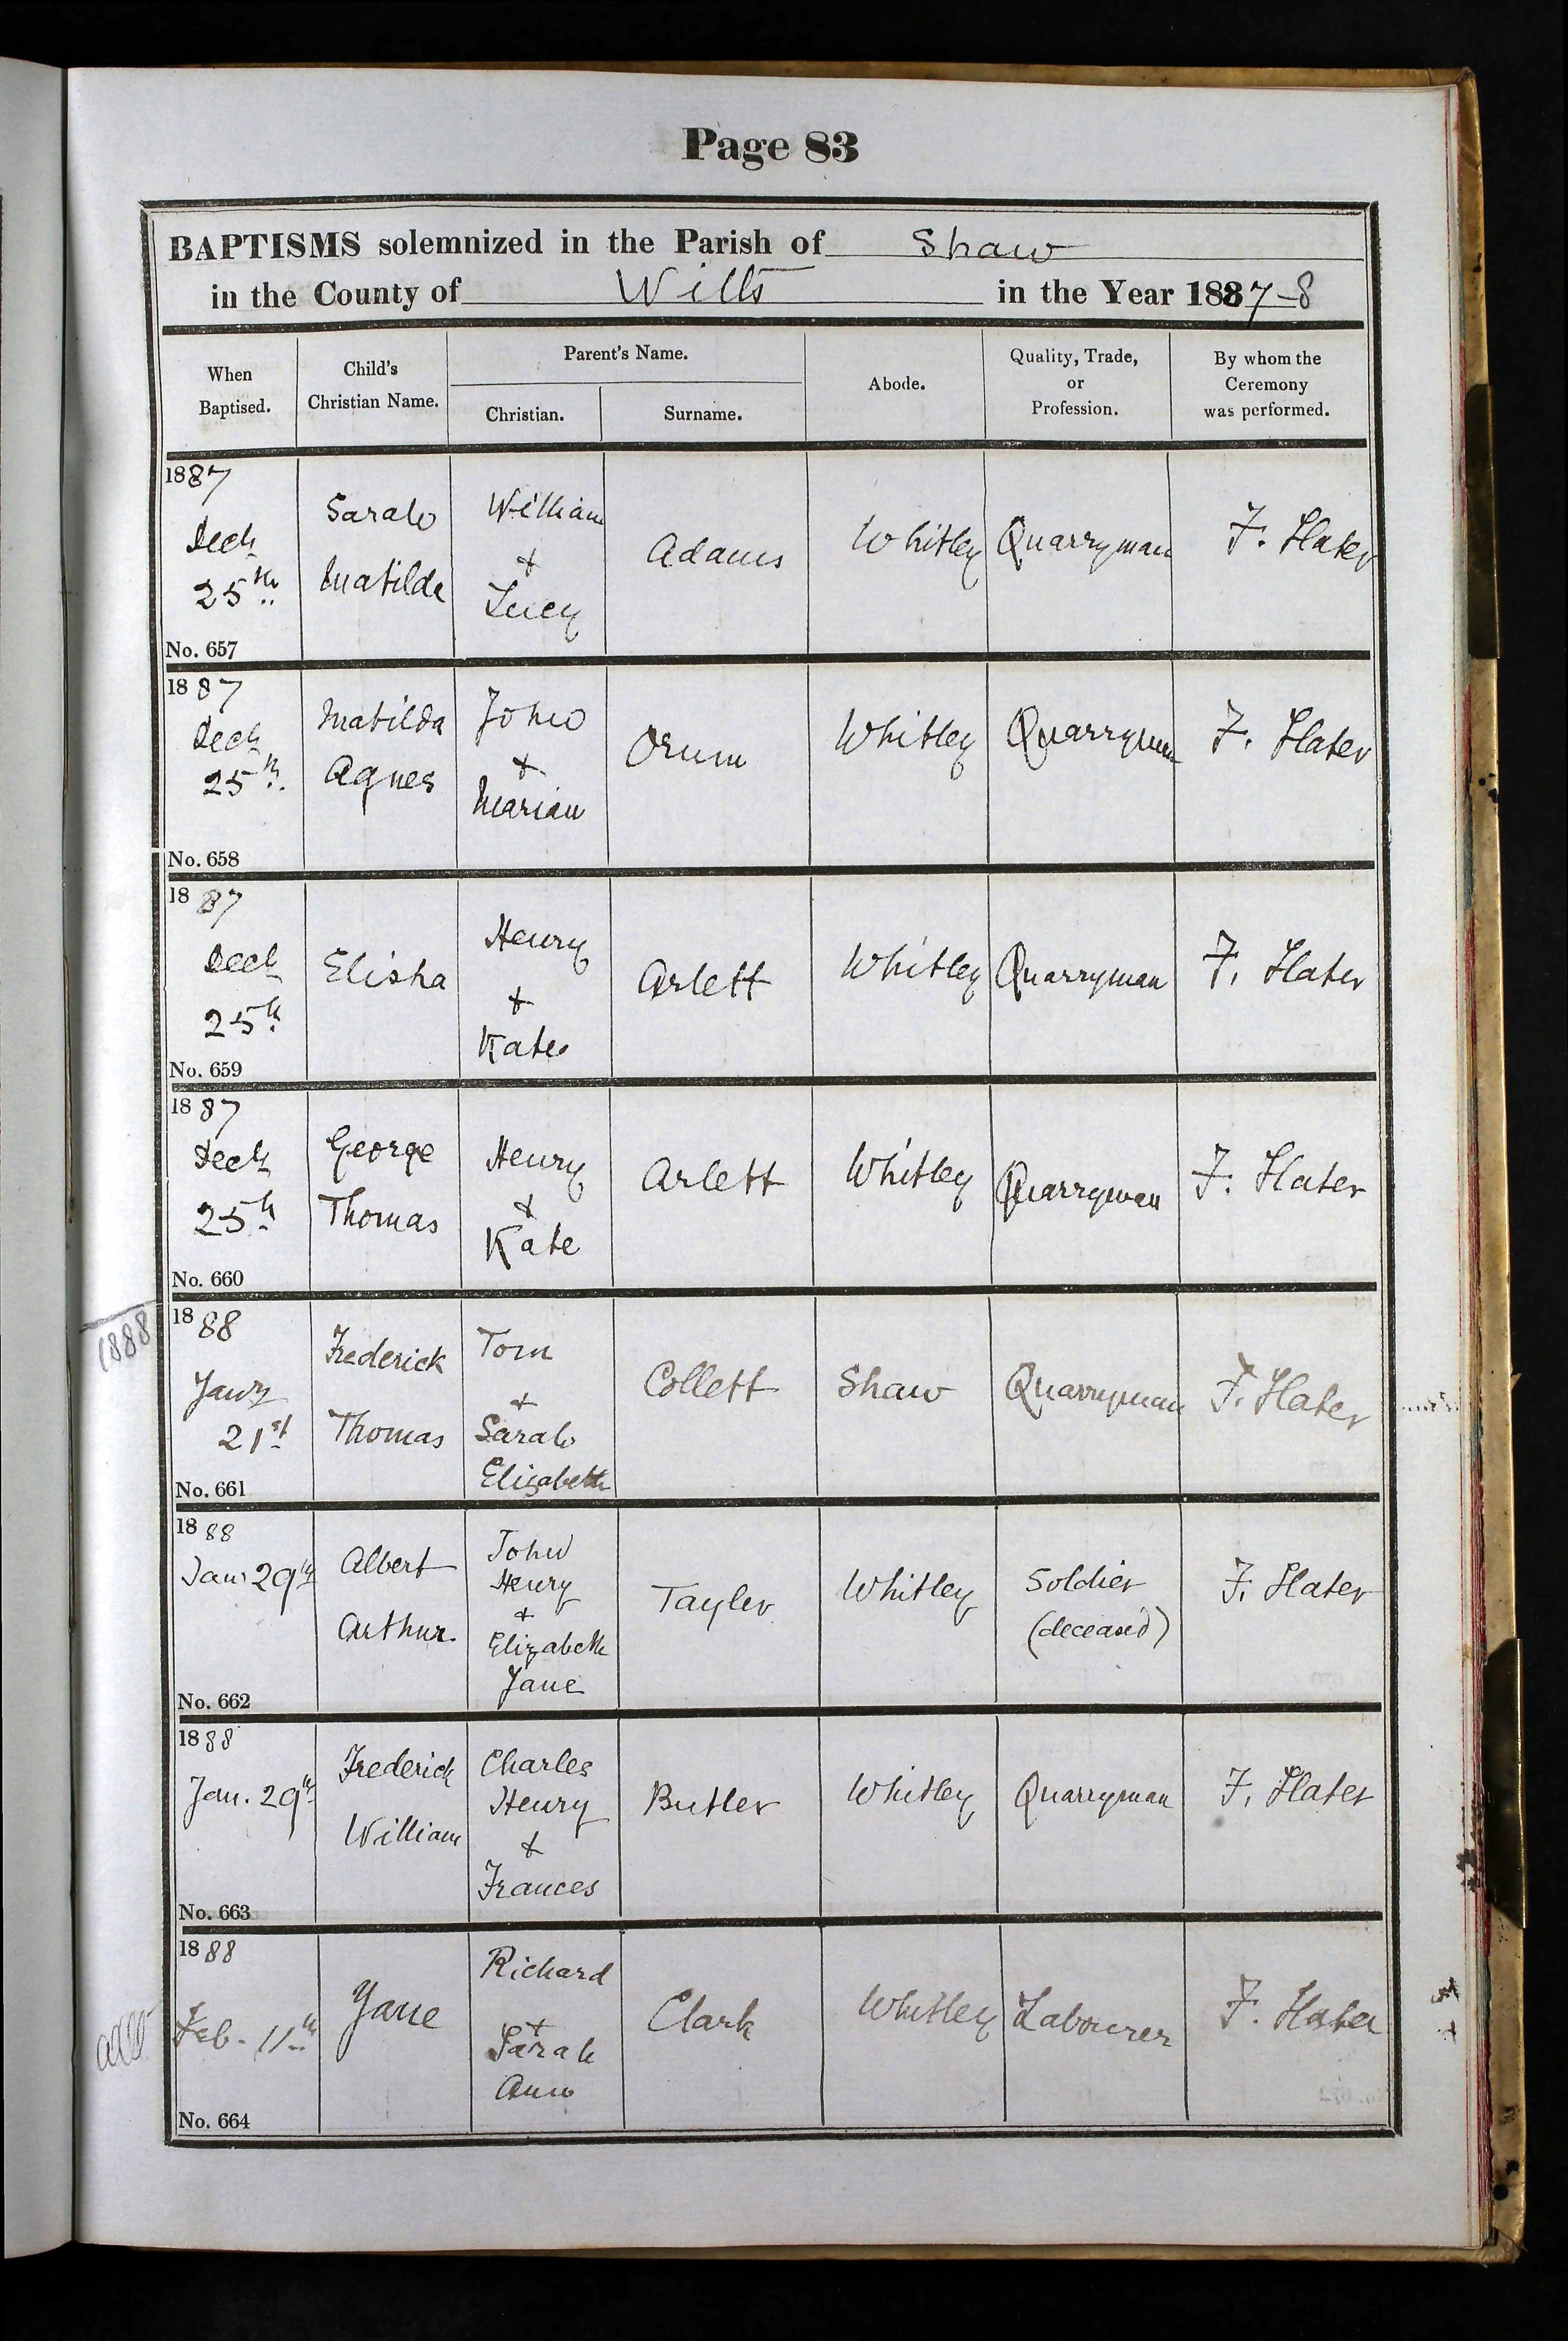 Page 83
BAPTISMS solemnized in the Parish of Shaw
in the County of Wilts in the Year 1887-8
When Baptised. Child's Christian Name. Parent's Name. Christian. Surname. Abode. Quality, Trade, or Profession. By whom the Ceremony was performed.
1887
Decr 25th
Sarah Matilda
William & Lucy
Adams
Whitley
Quarryman
F. Slater
No. 657
1887
Decr 25th
Matilda Agnes
John & Marian
Orum
Whitley
Quarryman
F. Slater
No. 658
1887
Decr 25th
Elisha
Henry & Kate
Arlett
Whitley
Quarryman
F. Slater
No. 659
1887
Decr 25th
George Thomas
Henry & Kate
Arlett
Whitley
Quarryman
F. Slater
No. 660
1888
1888
Jany 21st
Frederick Thomas
Tom & Sarah Elizabeth
Collett
Shaw
Quarryman
F. Slater
No. 661
1888
Jany 29th
Albert Arthur.
John Henry & Elizabeth Jane
Tayler
Whitley
Soldier (deceased)
F. Slater
No. 662
1888
Jan. 29th
Frederick William
Charles Henry & Frances
Butler
Whitley
Quarryman
F. Slater
No. 663
1888
Feb. 11th
Jane
Richard & Sarah Ann
Clark
Whitley
Labourer
F. Slater
No. 664